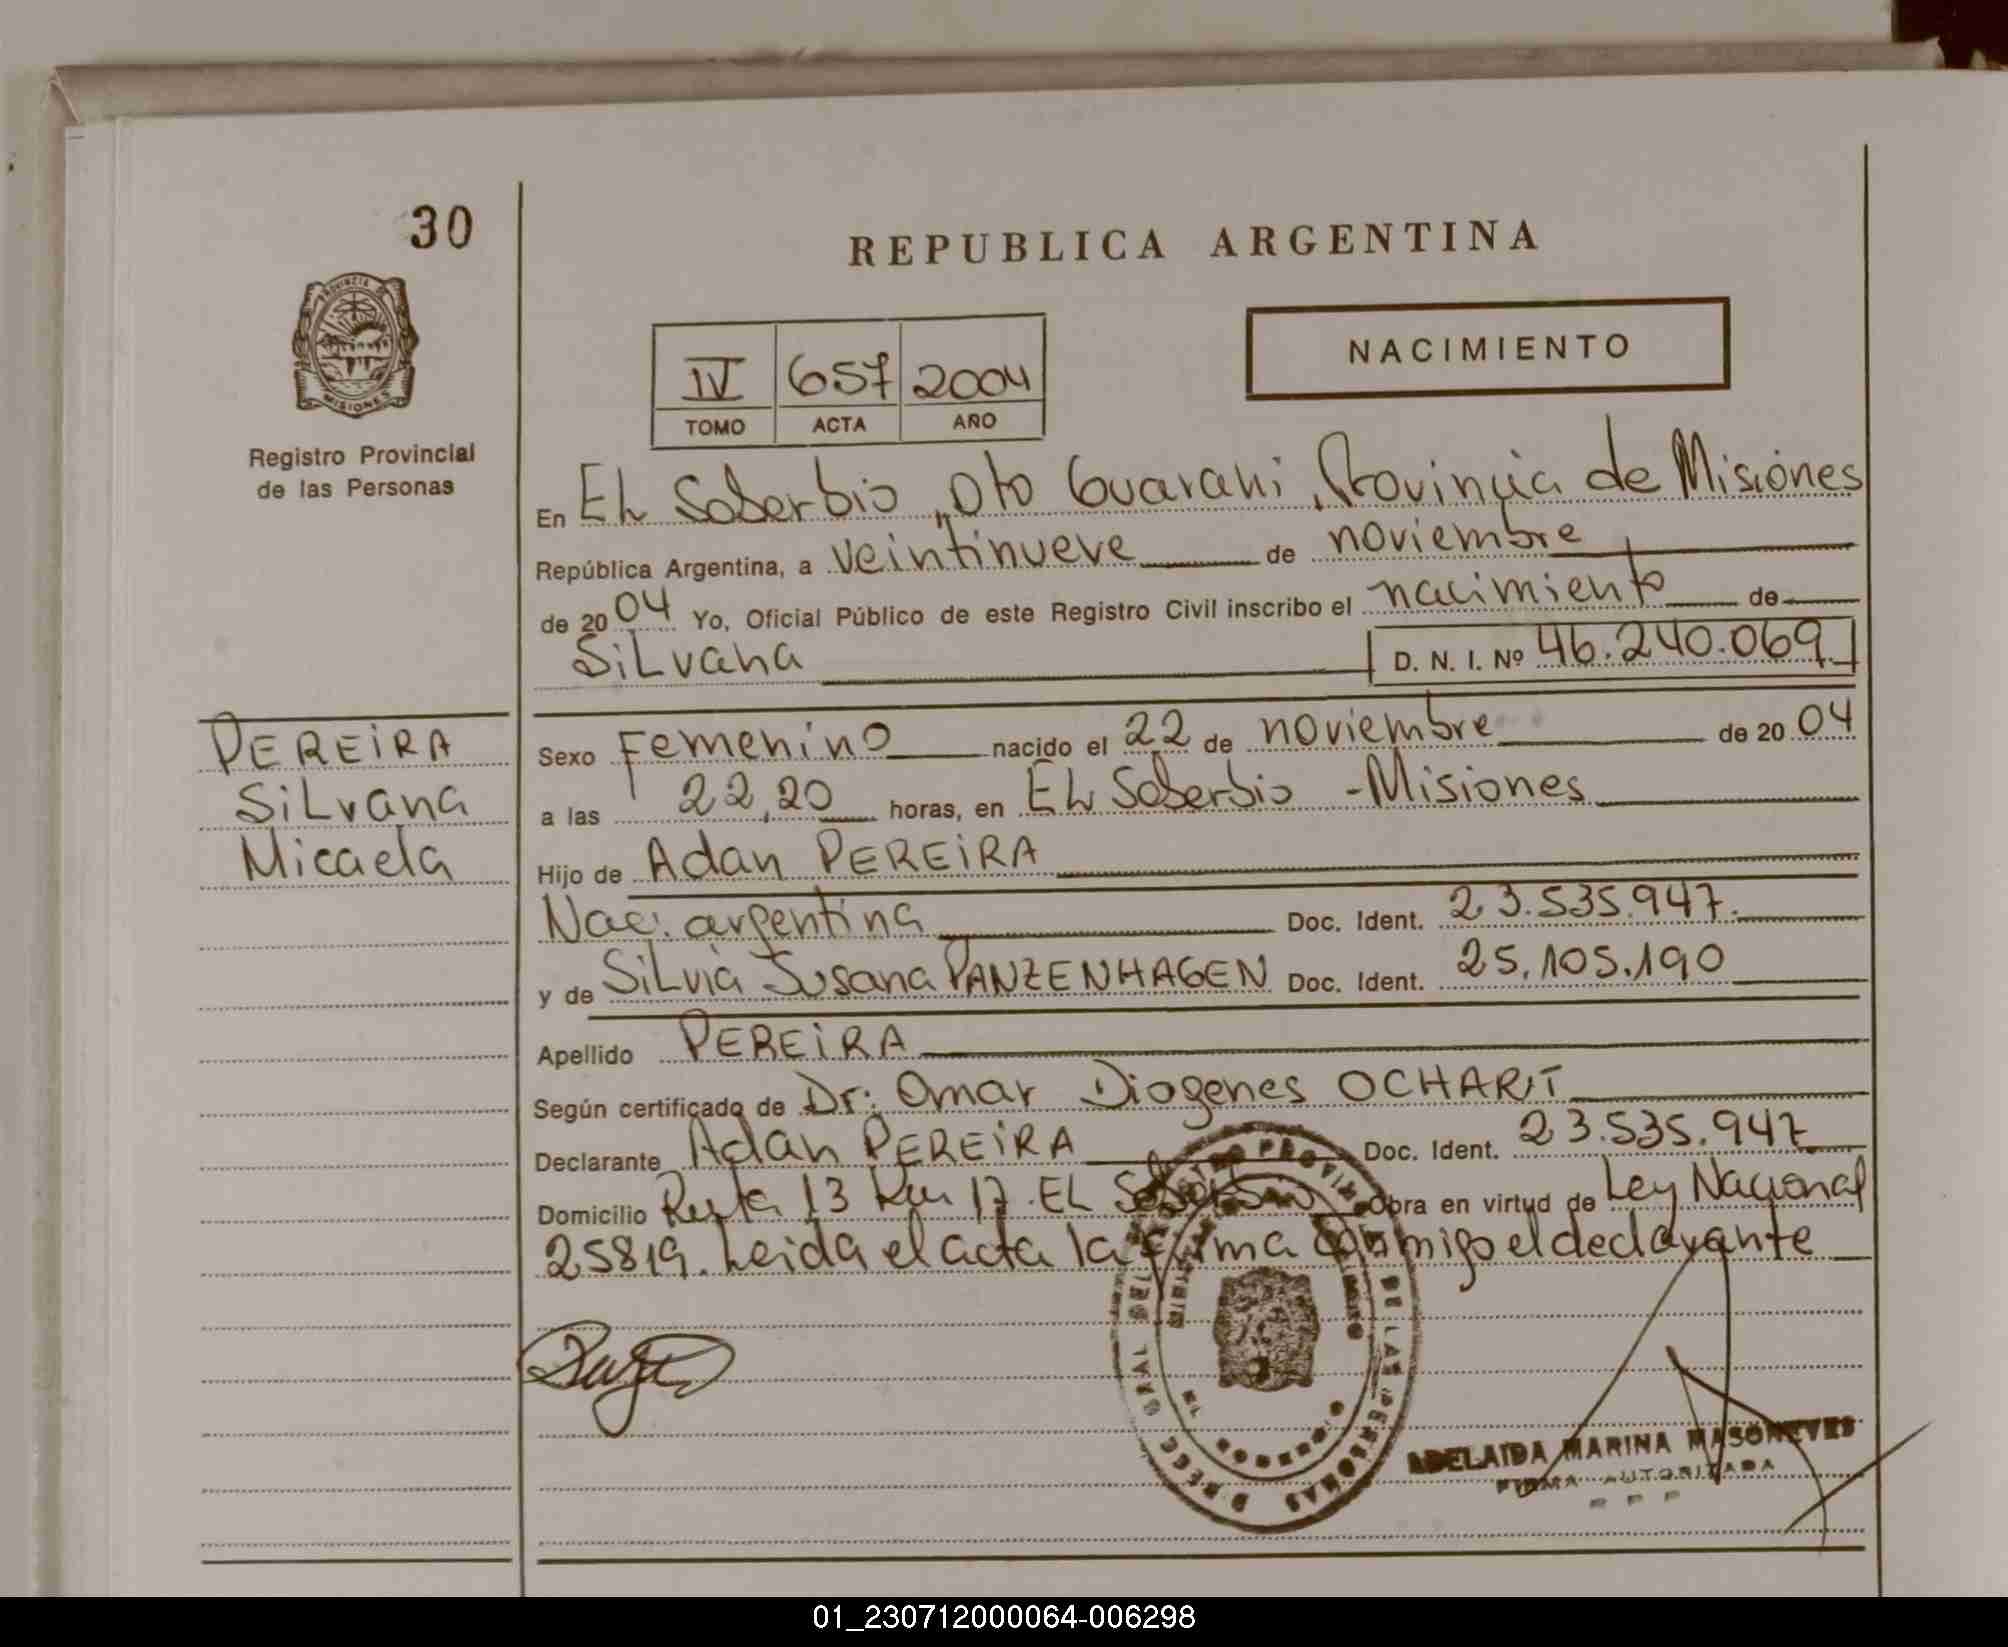 30
REPUBLICA ARGENTINA
PROVINCIA DE
MISIONES
Registro Provincial
de las Personas
IV 657 2004
TOMO ACTA AÑO
NACIMIENTO
En EL Soberbio, Dto Guarani, Provincia de Misiones
República Argentina, a veintinueve de noviembre
de 2004 Yo, Oficial Público de este Registro Civil inscribo el nacimiento de
SiLvana D. N. I. Nº 46.240.069
PEREiRA
SiLvana
Micaela
Sexo Femenino nacido el 22 de noviembre de 2004
a las 22,20 horas, en EL Soberbio - Misiones
Hijo de Adan PEREiRA
Nac: argentina Doc. Ident. 23.535.947.
y de SiLvia Susana PANZENHAGEN Doc. Ident. 25.105.190
Apellido PEREiRA
Según certificado de Dr: Omar Diogenes OCHARIT
Declarante Adan PEREiRA Doc. Ident. 23.535.947
Domicilio Ruta 13 Km 17. EL Soberbio Obra en virtud de Ley Nacional
25819. Leida el acta la firma conmigo el declarante
DE LAS PERSONAS
ADELAIDA MARINA MASONEVES
FIRMA AUTORIZADA
01_230712000064-006298